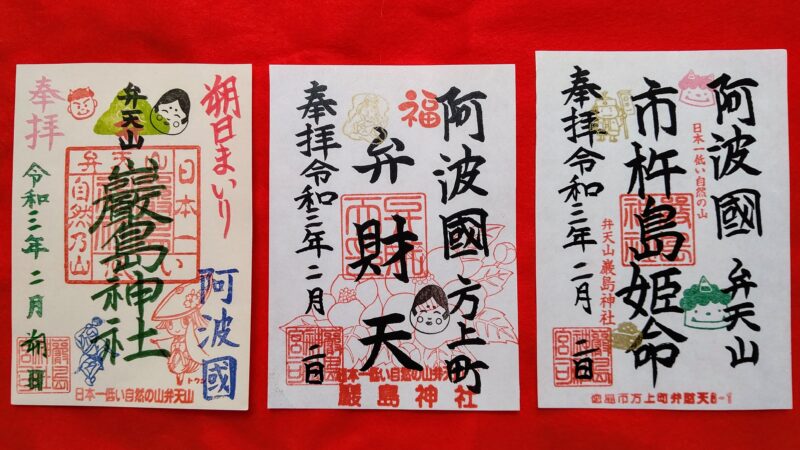 朔日まいり
奉拝
弁天山
巖島神社
阿波國
令和三年二月朔日
日本一低い自然の山弁天山
阿波國方上町
福
弁財天
奉拝令和三年二月二日
日本一低い自然の山弁天山
巖島神社
阿波國弁天山
市杵島姫命
奉拝令和三年二月二日
日本一低い自然の山
弁天山巖島神社
徳島市方上町弁財天8-1